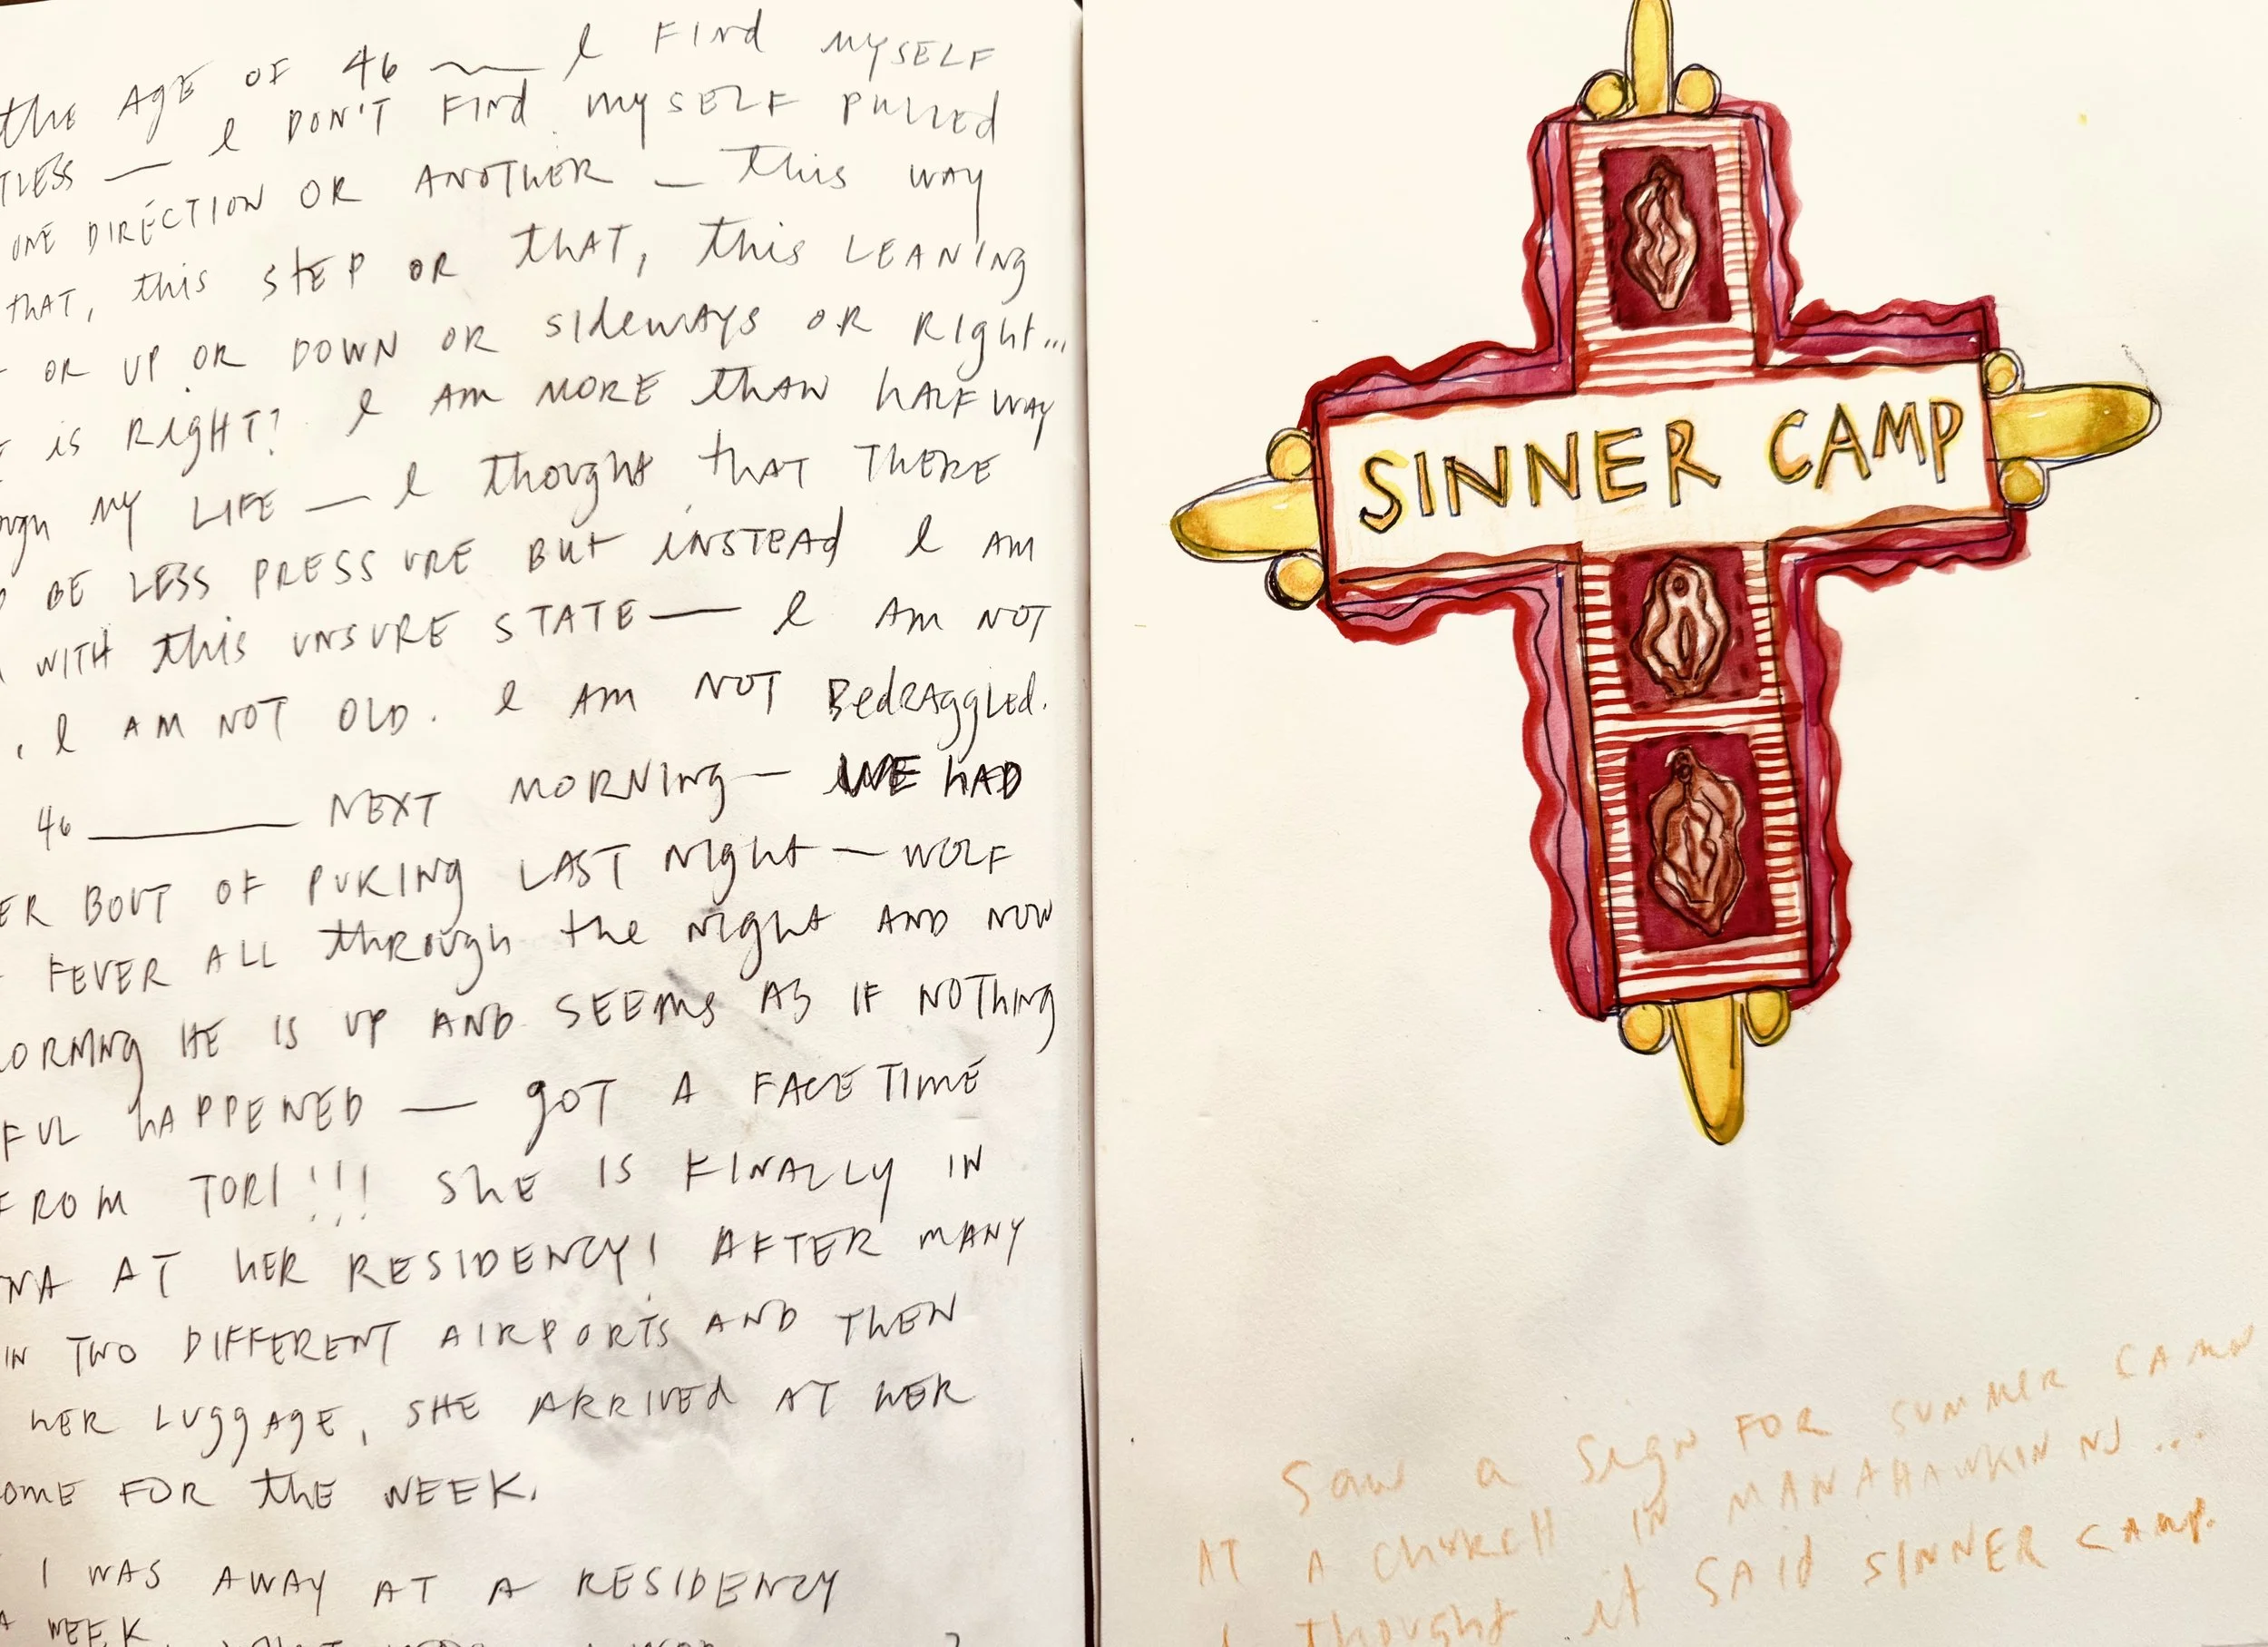 the AGE OF 46 — I FINd MYSELF
TLESS — I DON'T FINd MYSELF PULLED
ONE DIRECTION OR ANOTHER — this WAY
THAT, this STEP OR that, this LEANING
OR UP OR DOWN OR sidewAYS OR RIght...
is RIGHT? I AM MORE thAN hALFWAY
ough MY LIFE — I thought thAT THERE
BE LESS PRESSURE BUt INSTEAd I AM
WITH this UNSURE STATE — I AM NOT
, I AM NOT OLD. I AM NOT BedRAggLed.
46 — NEXT MORNINg — WE hAD
ER BOUT OF PUKING LAST NIght — WOLF
FEVER ALL through the NIght AND NOW
ORNINg HE IS UP AND SEEMS AS IF NOThING
FUL hAPPENED — GOT A FACETIME
FROM TORI!!! ShE IS FINALLY IN
NA AT hER RESIDENCY! AFTER MANY
IN TWO DIFFERENT AIRPORTS AND THEN
HER LUggAgE, SHE ARRIVEd AT HER
OME FOR the WEEK.
I WAS AWAY AT A RESIDENCY
A WEEK
SINNER CAMP
Saw a Sign FOR SUMMER CAMP
AT A ChURCH IN MANAHAWKIN NJ ...
I thought it SAId SINNER CAMP.